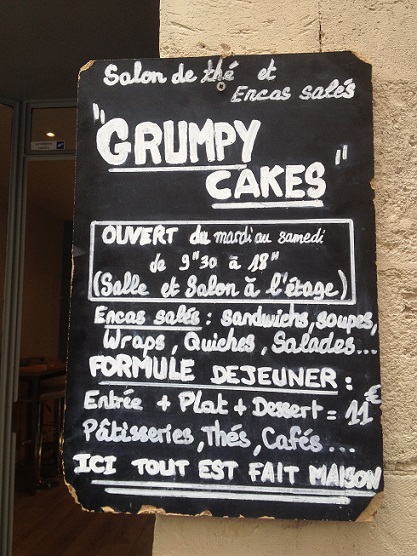 Salon de thé et
Encas salés
"GRUMPY
CAKES"
OUVERT du mardi au samedi
de 9"30 à 18"
(Salle et Salon à l'étage)
Encas salés : sandwichs, soupes,
Wraps, Quiches, Salades...
FORMULE DEJEUNER :
Entrée + Plat + Dessert = 11€
Pâtisseries, Thés, Cafés...
ICI TOUT EST FAIT MAISON